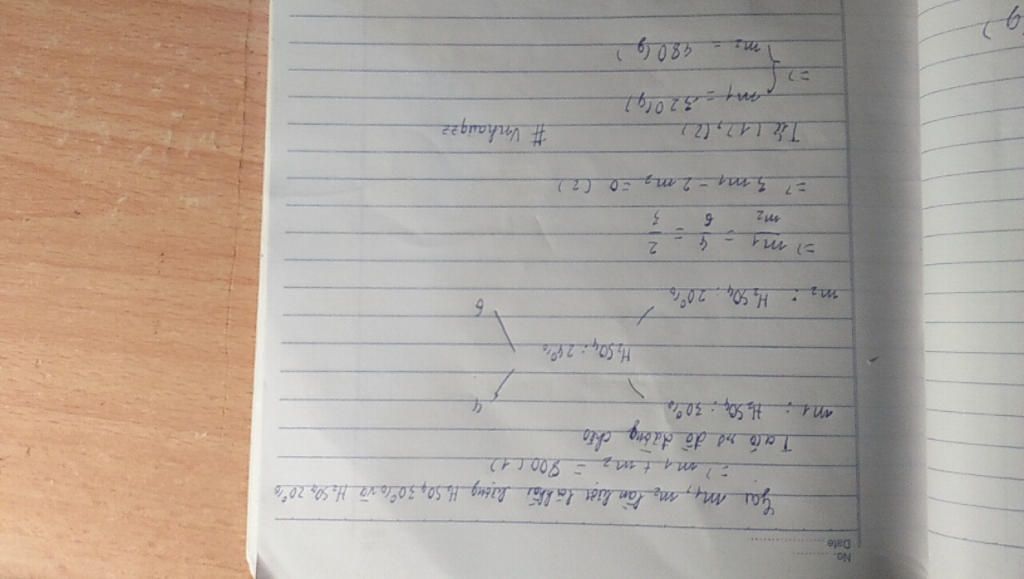 No.
Date
Gọi m1, m2 lần lượt là khối lượng H2SO4 30% và H2SO4 20%
=> m1 + m2 = 800 (1)
Ta có sơ đồ đường chéo
m1 : H2SO4 : 30% 4
H2SO4 : 24%
m2 : H2SO4 : 20% 6
=> m1/m2 = 4/6 = 2/3
=> 3m1 - 2m2 = 0 (2)
Từ (1), (2) # Vnhauqzz
=> { m1 = 320(g)
m2 = 480(g)